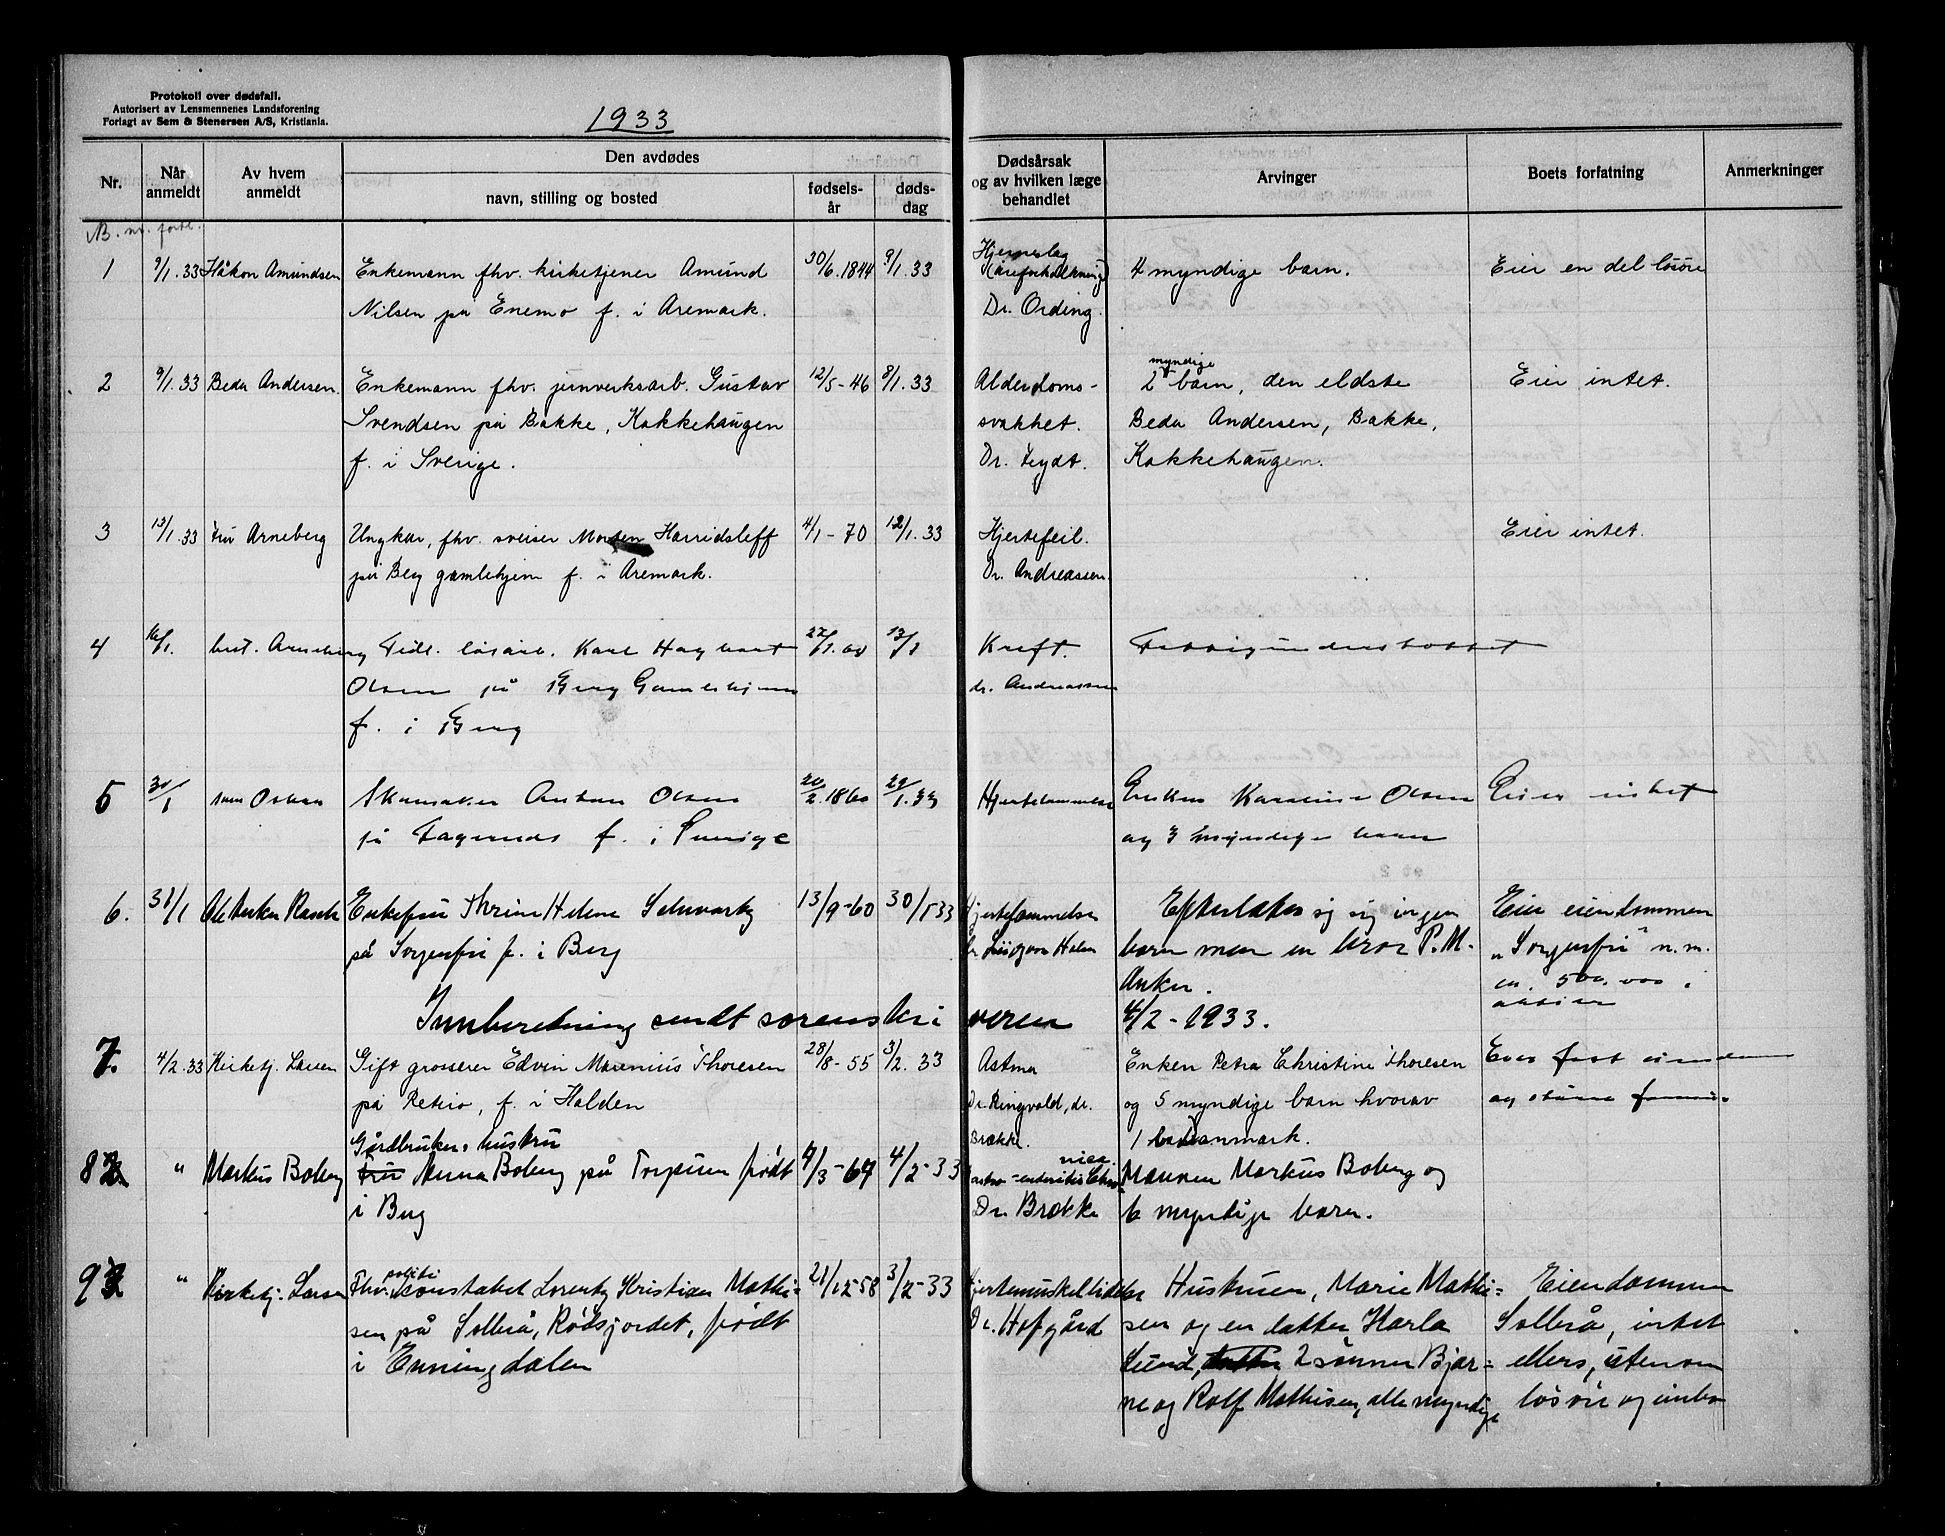 Protokoll over dødsfall.
Autorisert av Lensmennenes Landsforening
Forlagt av Sem & Stenersen A/S, Kristiania.
1933
Nr.
Når anmeldt
Av hvem anmeldt
Den avdødes
navn, stilling og bosted
fødsels-år
døds-dag
Dødsårsak og av hvilken læge behandlet
Arvinger
Boets forfatning
Anmerkninger
1 9/1.33 Håkon Amundsen Enkemann fhv. kirketjener Amund 30/6.1844 9/1.33 Hjerneslag 4 myndige barn. Eier en del løsøre
(åreforkalkning)
Nilsen på Enemo f. i Aremark. Dr. Ording.
myndige
2 9/1.33 Beda Andersen. Enkemann fhv. jernverksarb. Gustav 12/5-46 8/1.33 Alderdoms- 2 barn, den eldste Eier intet.
Svendsen på Bakke, Kakkehaugen svakhet. Beda Andersen, Bakke,
f. i Sverige. Dr. Feydt. Kakkehaugen.
3 13/1.33 Fru Arneberg Ungkar, fhv. sveiser Morten Harridsleff 4/1-70 12/1.33 Hjertefeil. Eier intet.
på Berg gamlehjem f. i Aremark. Dr. Andreassen.
4 16/1. best. Arneberg Tidl. løsarb. Karl Hagbart 22/1.60 13/1 Kreft. Fattigunderstøttet
Olsen på Berg Gamlehjem dr. Andreassen
f. i Berg
5 30/1 Anton Olsen 20/2.1860 29/1.33 Hjertelammelse Enken Karoline Olsen Eier intet
på f. i Sverige og 3 myndige barn
6. 31/1 Ole Anker Rasch Enkefru Thrine Helene Schwartz 13/9-60 30/1 33 Hjertelammelse Efterlater sig sig ingen Eier eiendommen
på Sorgenfri f. i Berg barn men en bror P. M. "Sorgenfri" n.m.
Anker.
Innberetning sendt sorenskriveren 4/2-1933.
7. 4/2.33 Kirketj. Larsen Gift grosserer Edvin Marenius Thoresen 28/8-55 3/2.33 Astma Enken Petra Christine Thoresen Eier fast eiendom
på Retiro, f. i Halden Dr. Ringvold, dr. og 5 myndige barn hvorav og større
Brække. 1 i Danmark.
Gårdbruker hustru
8 " Markus Boberg Fru Anna Boberg på Torpum født 4/3-67 4/2-33 Mannen Markus Boberg og
i Berg Dr. Brække 6 myndige barn.
politi
9 " Kirketj. Larsen Fhv. konstabel Lorentz Kristian Mathi- 21/12 58 3/2-33 Hjertemuskellidelse Hustruen, Marie Mathi- Eiendommen
sen på Solbrå, Rødsjordet, født Dr. Hofgård sen og en datter Harla Solbrå, intet
i Enningdalen Lund, 2 sønner Bjar- ellers, utenom
ne og Rolf Mathisen, alle myndige løsøre og innbo